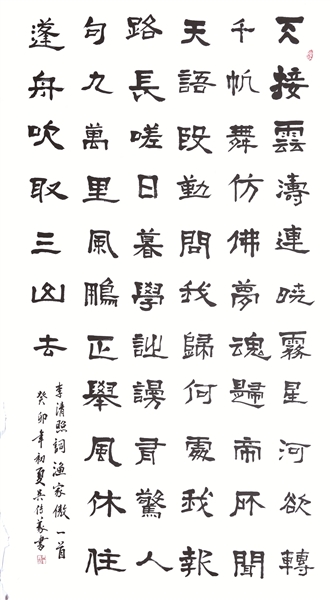 天接雲濤連曉霧星河欲轉
千帆舞仿佛夢魂歸帝所聞
天語殷勤問我歸何處我報
路長嗟日暮學詩謾有驚人
句九萬里風鵬正舉風休住
蓬舟吹取三山去
李清照詞渔家傲一首
癸卯年初夏吴書